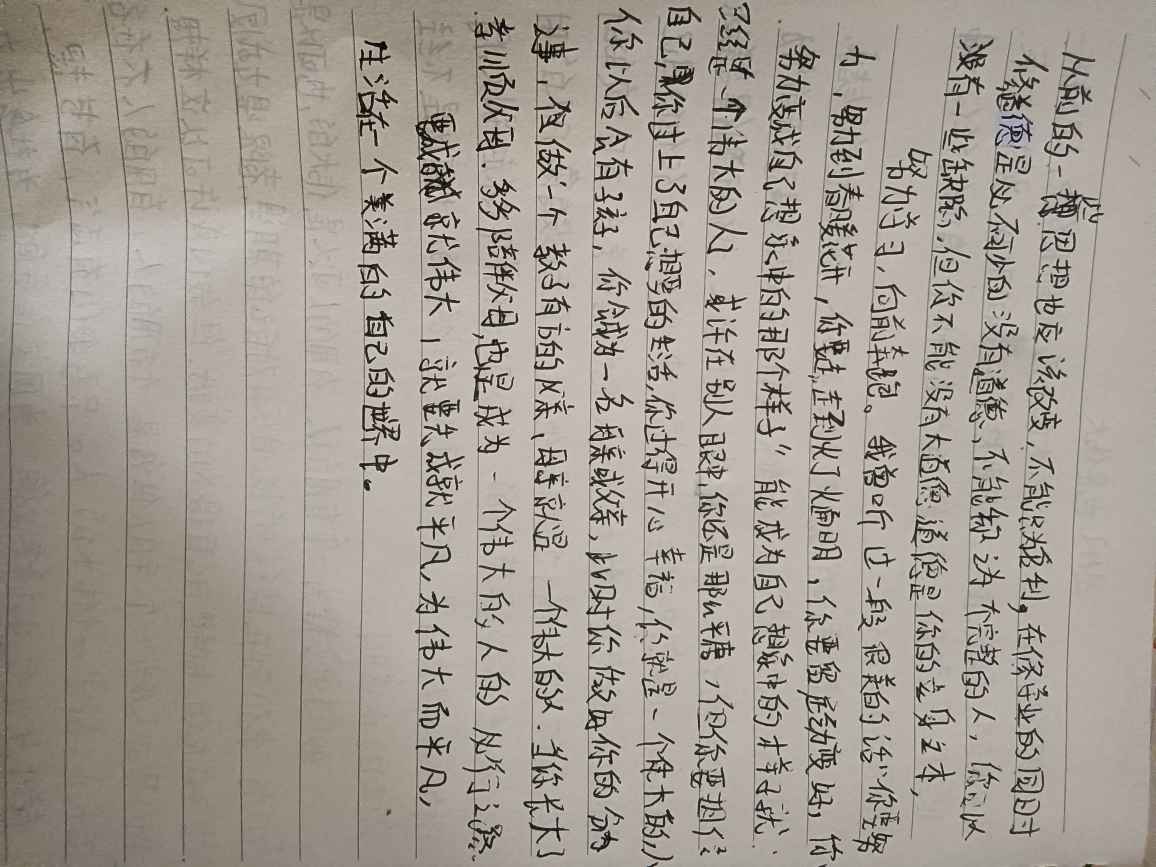 从前的一些思想也应该改变,不能只为利。在修学业的同时
修道德是处不少的没有道德,不能称为 完整的人,你可以
没有一些缺陷,但你不能没有大道德道德是你的立身之本,
努力学习,向前奔跑。我曾听过一段很美的话"你要努
力,努力到春暖花开,你要走,走到火了灯通明,你要努力变好,你
努力变成自己想象中的那个样子"能成为自己想象中的样子就
已经是一个伟大的人,或许在别人眼中,你还是那么平庸,但你要相信
自己,只要你过上了自己想要的生活,你过得开心幸福,你就是一个伟大的人
你以后会有孩子,你会成为一名母亲或父亲,此时你做好你的分内
事,在做一个教子有方的父亲,母亲就是一个伟大的人.当你长大了
孝顺父母.多多陪伴父母,也是成为一个伟大的人的必行之路.
要成就伟大,就要先成就平凡,为伟大而平凡,
生活在一个美满的自己的世界中。